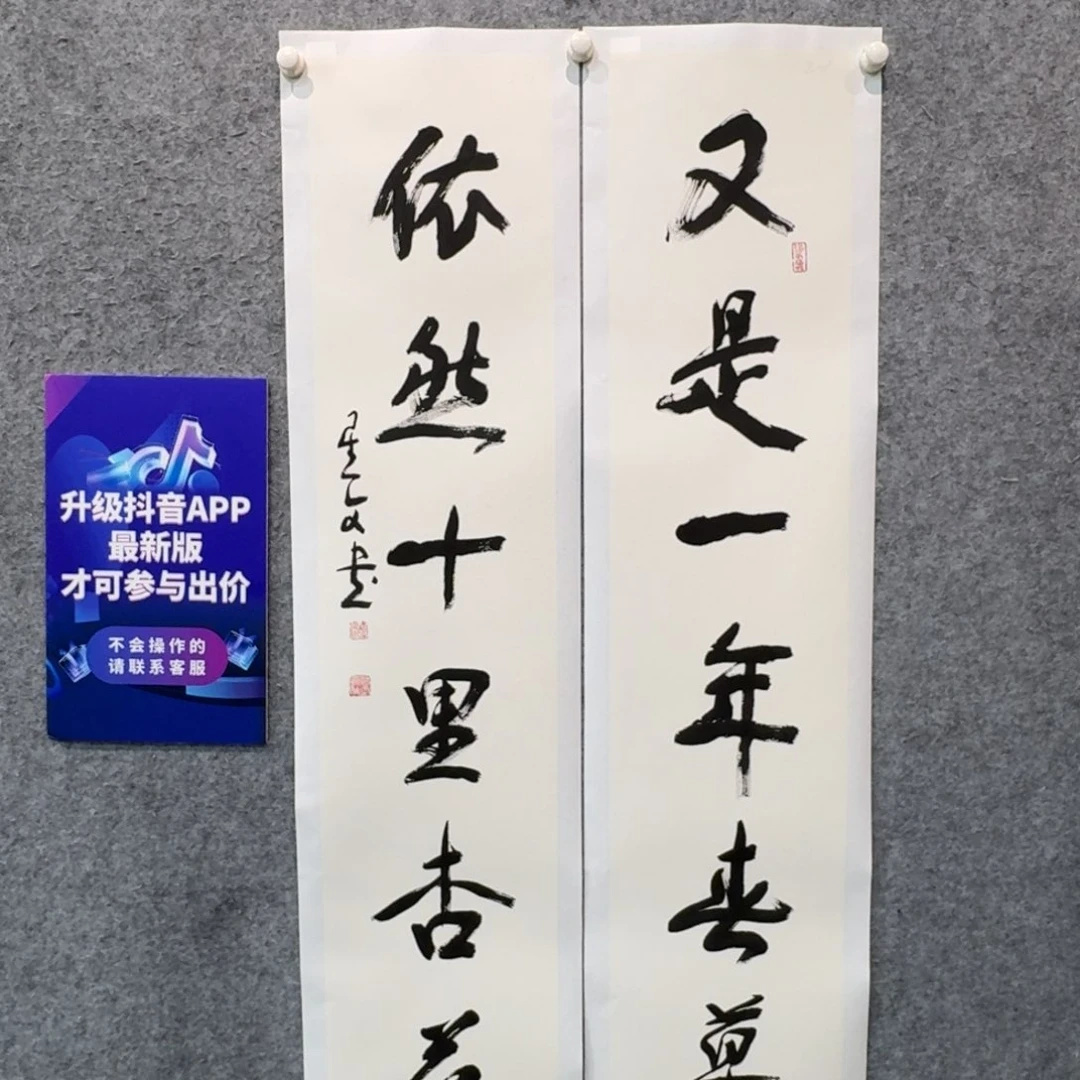 又是一年春草
依然十里杏花
升级抖音APP
最新版
才可参与出价
不会操作的
请联系客服